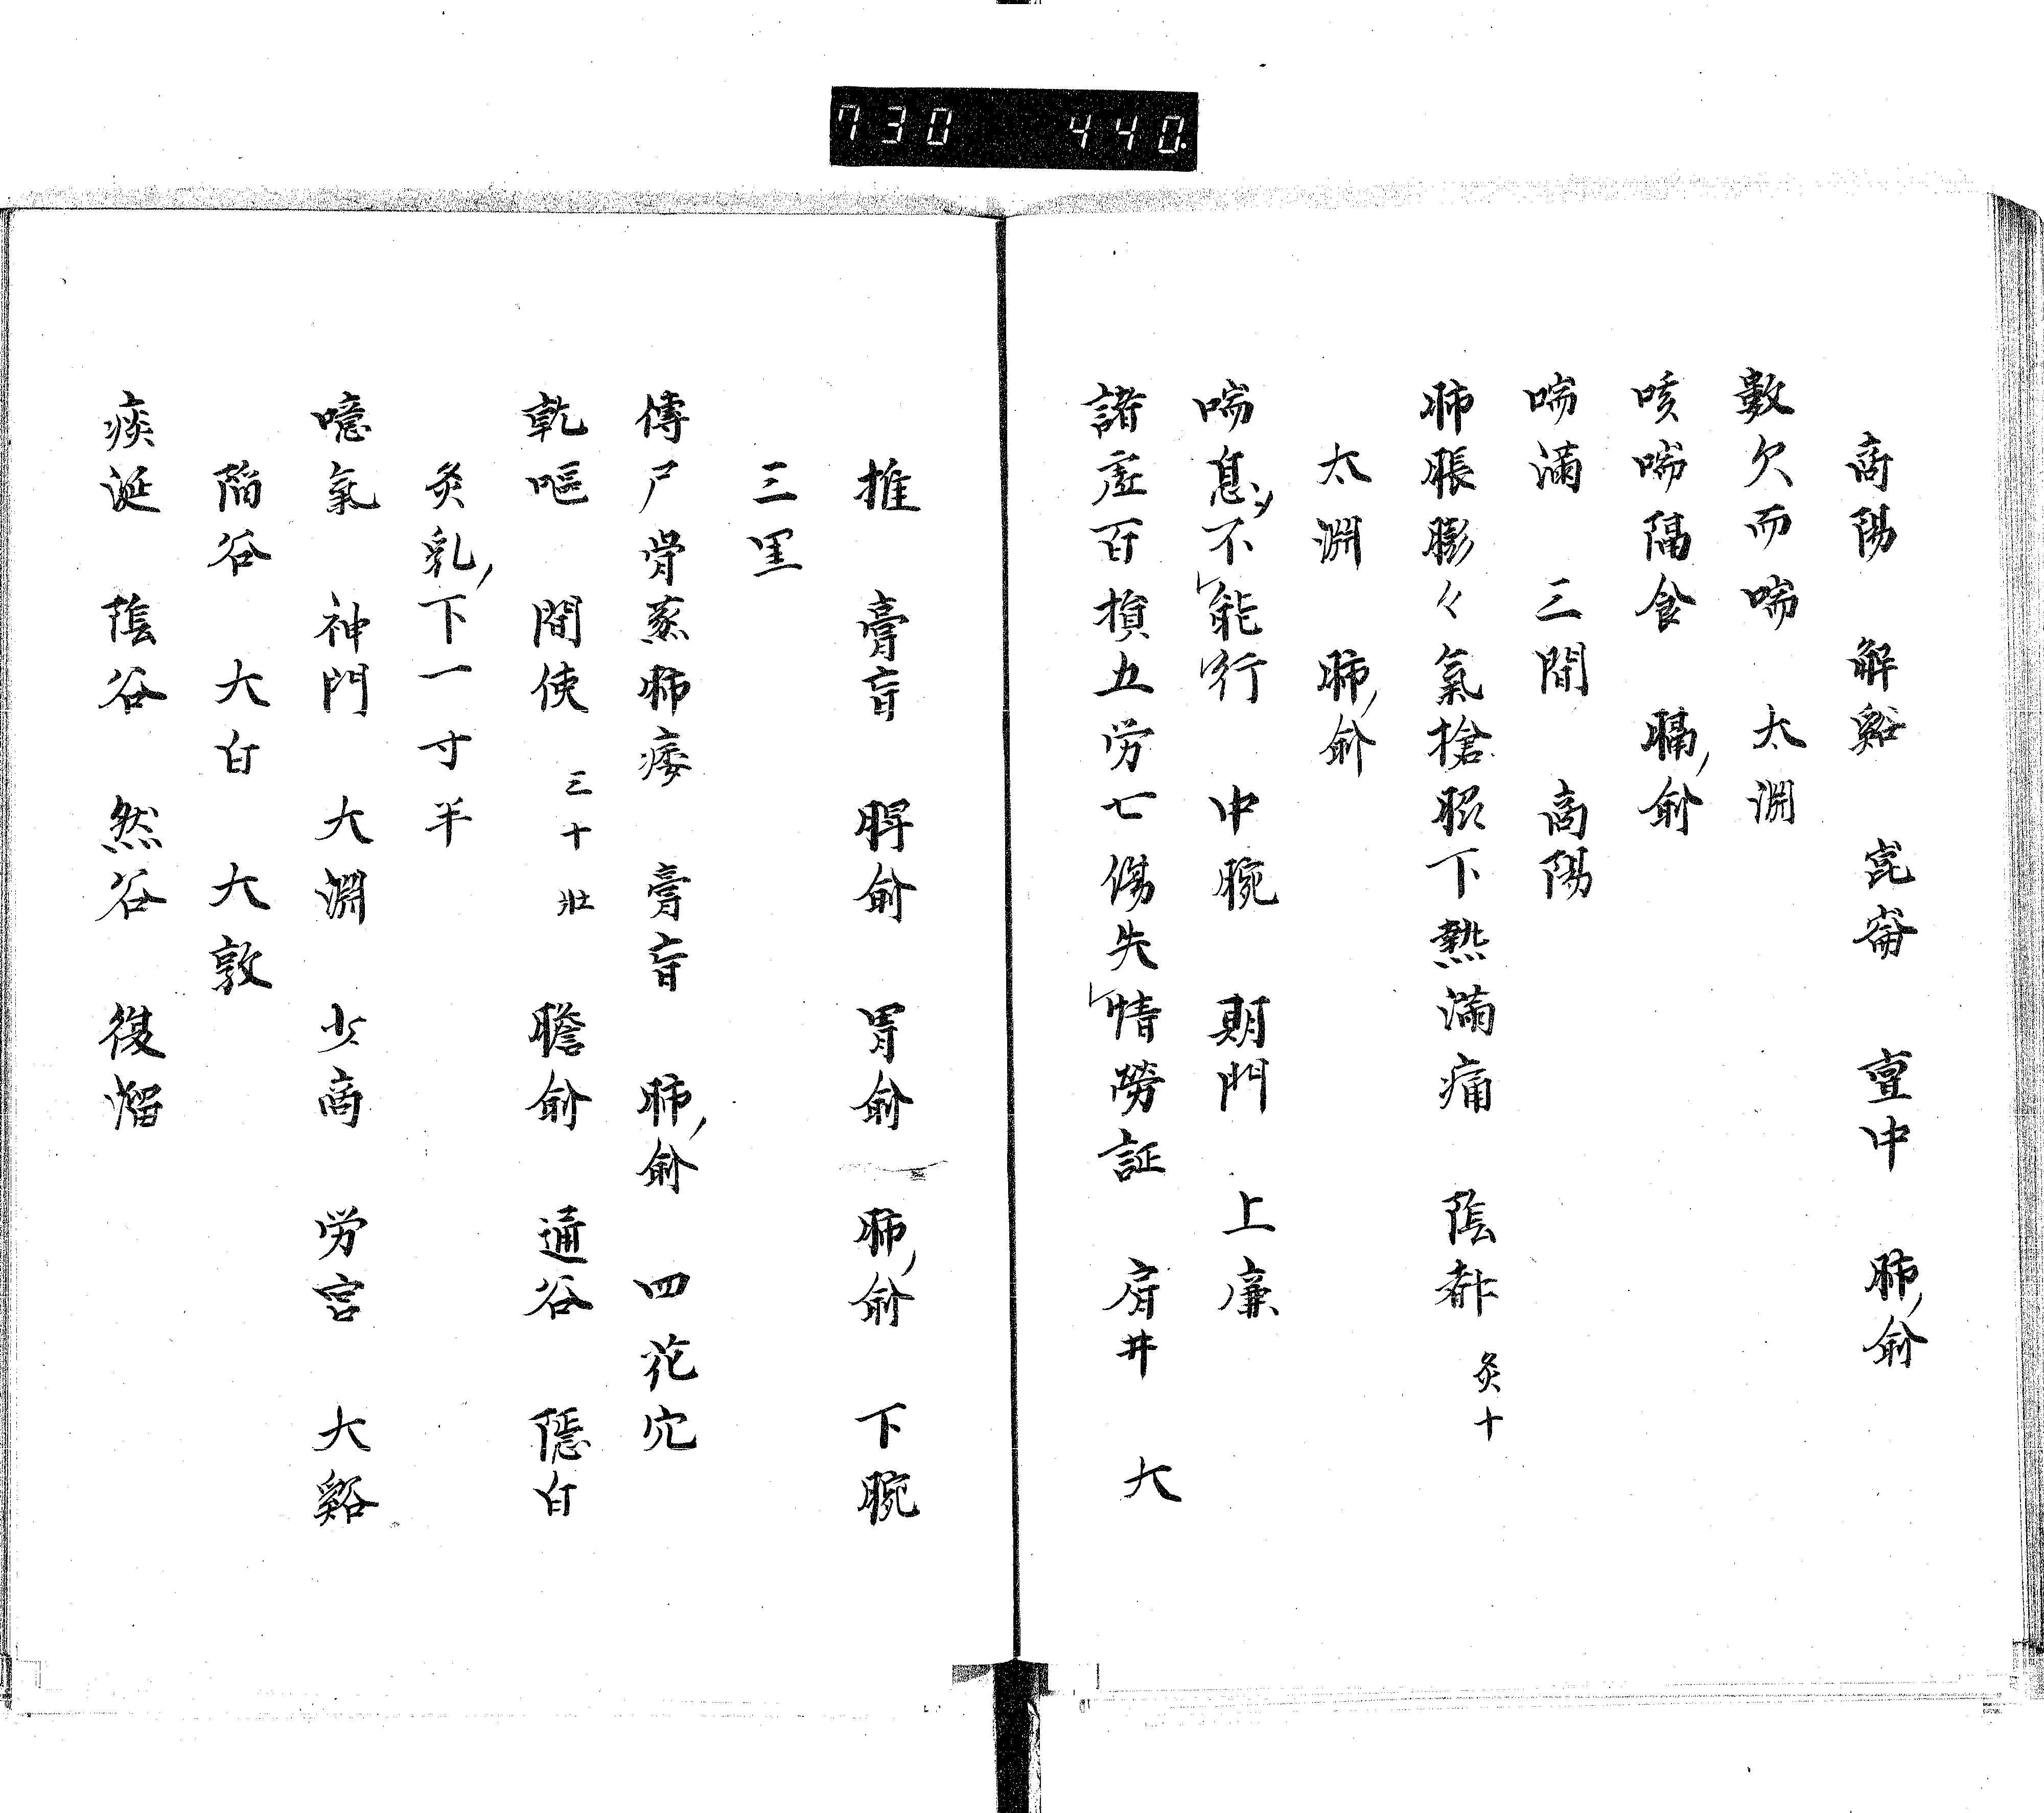 730 440.
商陽 解谿 崑崙 亶中 肺ノ俞
數欠而喘 太渊
咳喘隔食 膈ノ俞
喘滿 三間 商陽
肺脹膨々氣搶脇下熱滿痛 陰都 灸十
太渊 肺ノ俞
喘息ソ不レ能レ行 中脘 期門 上廉
諸虛百損五労七傷失レ情勞証 肩井 大
椎 膏肓 脾俞 胃俞 肺ノ俞 下脘
三里
傳尸骨蒸肺痿 膏肓 肺ノ俞 四花穴
乾嘔 間使 三十壯 膽俞 通谷 隱白
灸乳ノ下一寸半
噫氣 神門 大渊 少商 労宮 大谿
陷谷 大白 大敦
痰涎 陰谷 然谷 復溜